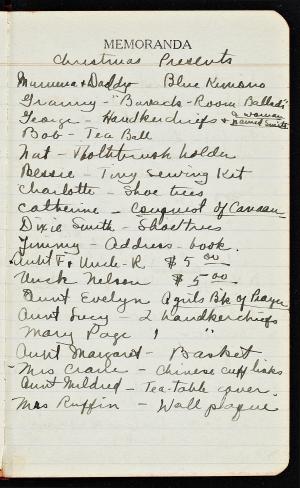 MEMORANDA
Christmas Presents
Mumma + Daddy Blue Kimono
Granny - "Barrack-Room Ballads"
George - Handkerchiefs + a woman named Smith
Bob - Tea Ball
Nat - Toothbrush holder
Bessie - Tiny Sewing Kit
Charlotte - Shoe trees
Catherine - Conquest of Canaan
Dixie Smith - Shoetrees
Jimmy - Address-book.
Aunt F + Uncle R $5.00
Uncle Nelson $5.00
Aunt Evelyn A girls Bk of Prayer
Aunt Lucy - 2 handkerchiefs
Mary Page 1 "
Aunt Margaret - Basket
- Mrs Crane - Chinese cuff links
Aunt Mildred - Tea-table cover.
Mrs Ruffin - Wall plaque